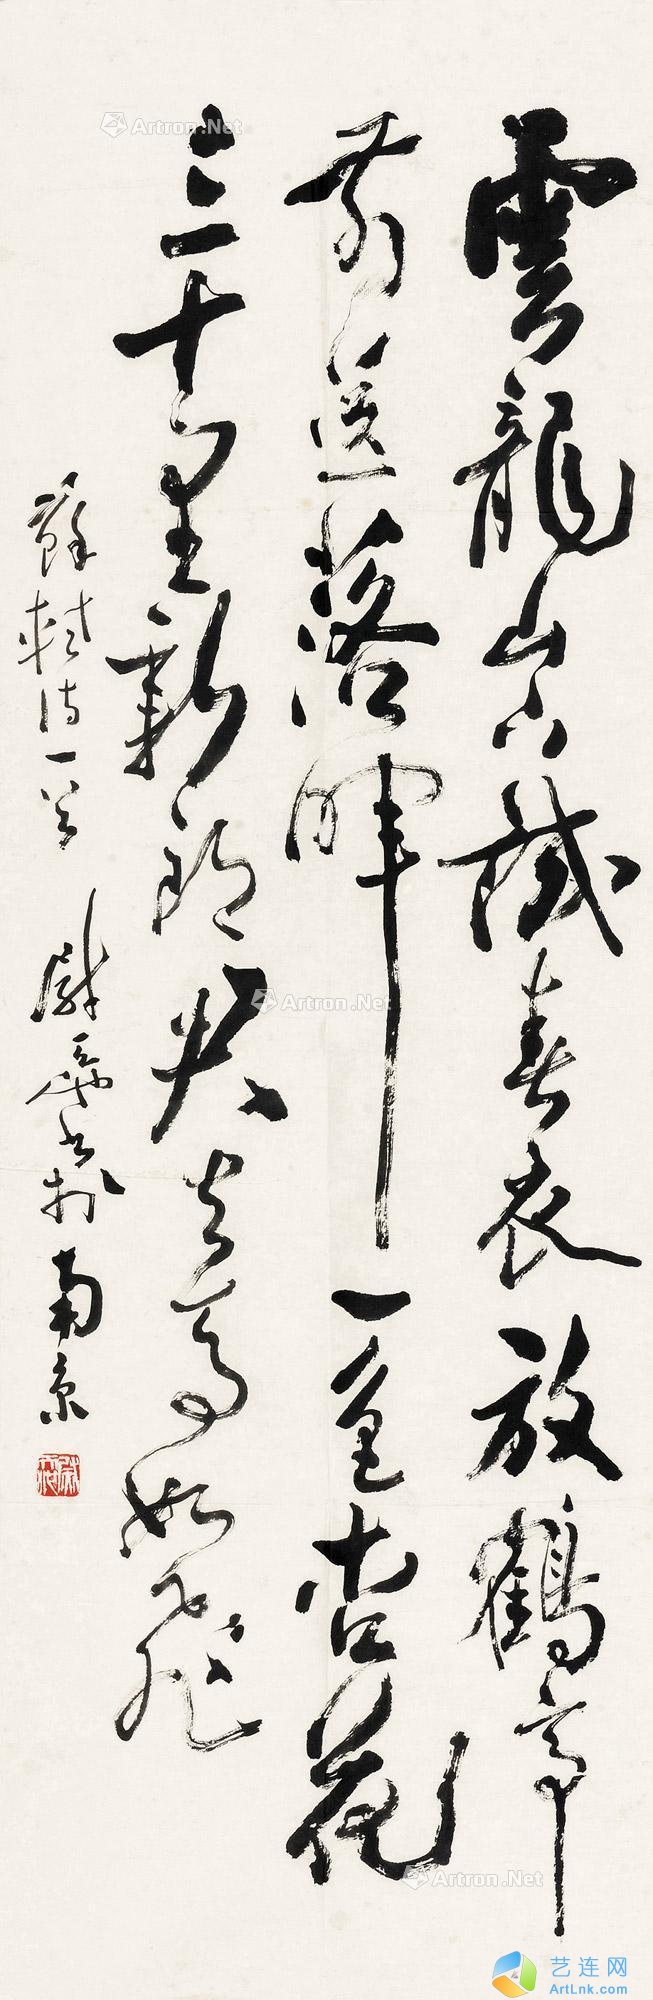 雲龍山下試春衣放鶴亭
前送落暉一色杏花
三十里新郎君去馬如飛
蘇軾詩一首 尉天池書於南京
Artron.Net
Artron.Net
Artron.Net
艺连网
ArtLnk.com